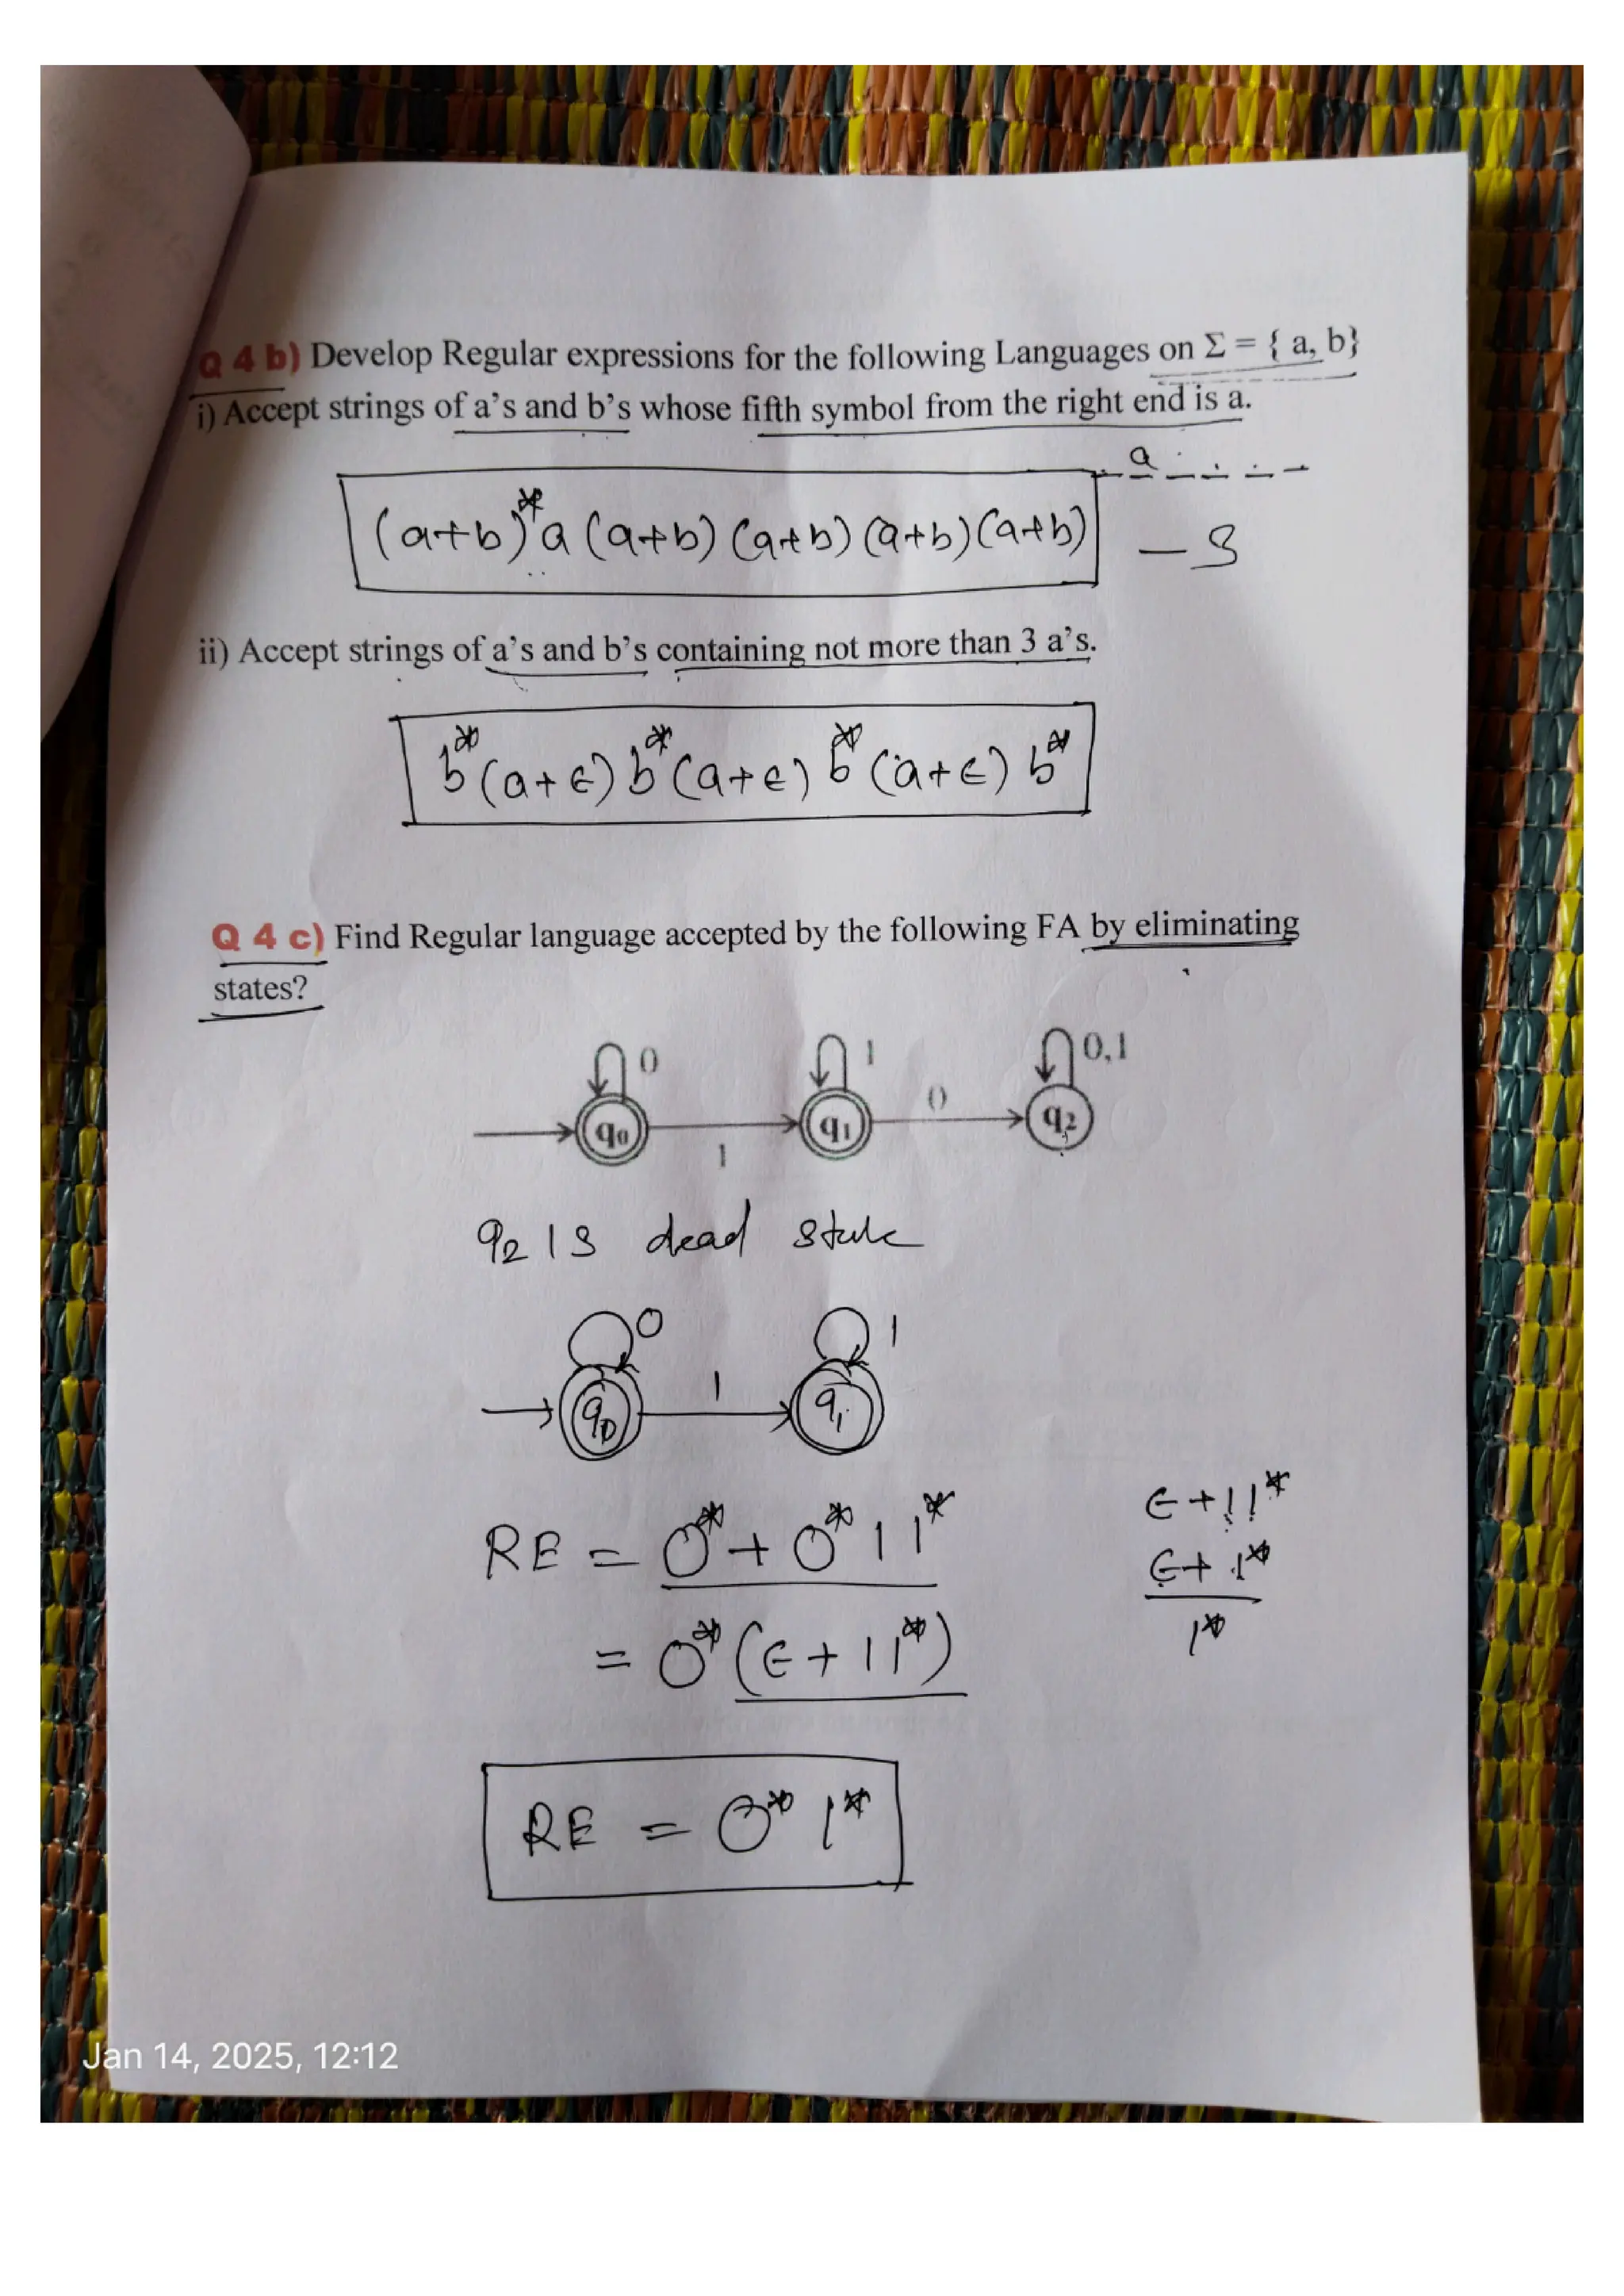 Q 4 b) Develop Regular expressions for the following Languages on Σ = { a, b}
i) Accept strings of a's and b's whose fifth symbol from the right end is a.
_ a _ _ _ _
(a+b)*a (a+b) (a+b) (a+b) (a+b) — S
ii) Accept strings of a's and b's containing not more than 3 a's.
b*(a+ϵ) b*(a+ϵ) b*(a+ϵ) b*
Q 4 c) Find Regular language accepted by the following FA by eliminating
states?
0 1 0,1
q0 1 q1 0 q2
q2 is dead state
0 1
q0 1 q1
RE = 0* + 0* 1 1*
= 0* (ϵ + 1 1*)
ϵ + 1 1*
ϵ + 1*
1*
RE = 0* 1*
Jan 14, 2025, 12:12